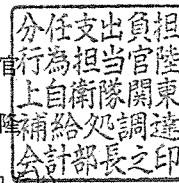 分任支出負担
行為担当官陸
上自衛隊関東
補給処調達
会計部長之印